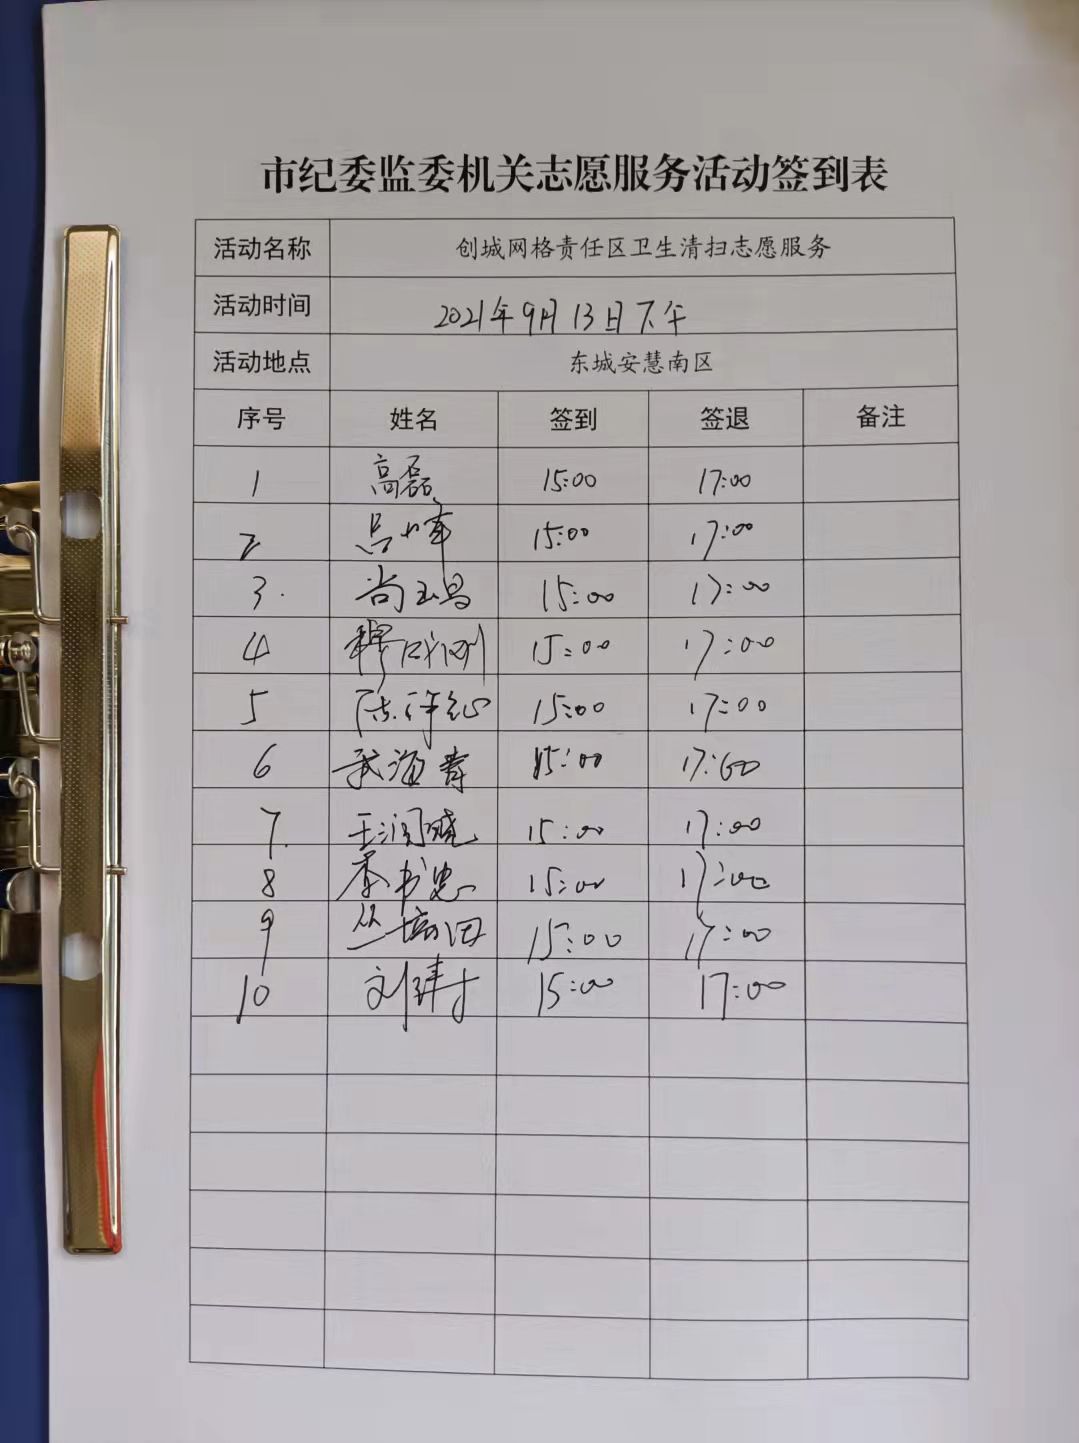 市纪委监委机关志愿服务活动签到表
活动名称 创城网格责任区卫生清扫志愿服务
活动时间 2021年9月13日下午
活动地点 东城安慧南区
序号 姓名 签到 签退 备注
1 高磊 15:00 17:00
2 吕峰 15:00 17:00
3. 尚玉昌 15:00 17:00
4 穆成刚 15:00 17:00
5 陈 15:00 17:00
6 武海青 15:00 17:00
7. 王润晓 15:00 17:00
8 李书忠 15:00 17:00
9 丛培田 15:00 17:00
10 刘 15:00 17:00